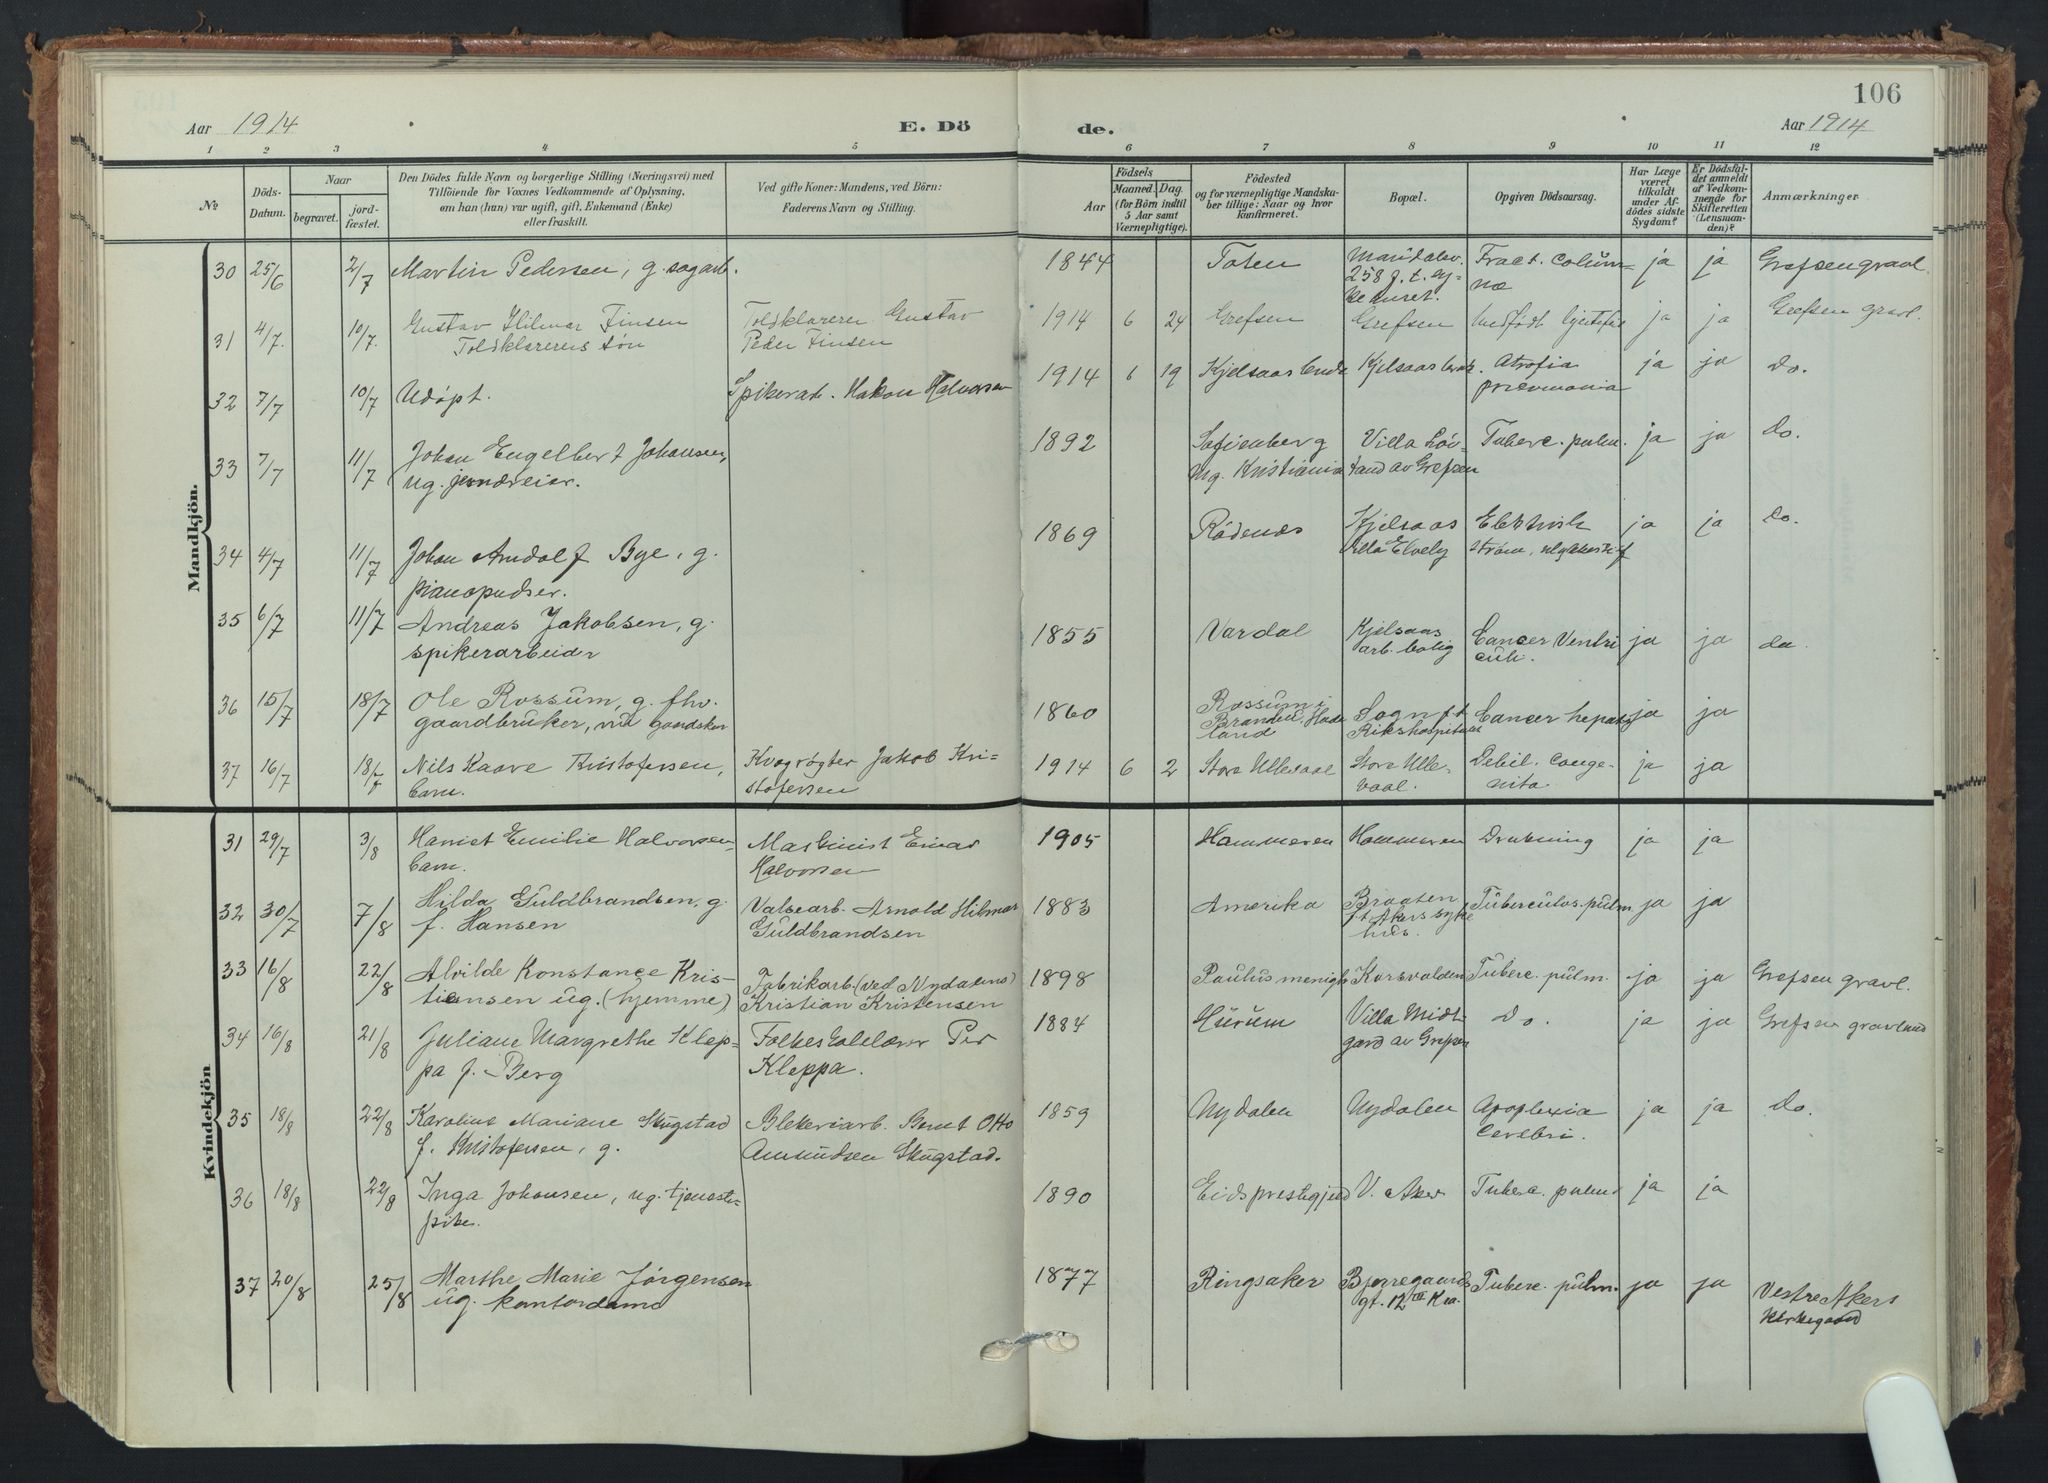 106
Aar 1914
E. Dö
de.
Aar 1914
1 2 3 4 5 6 7 8 9 10 11 12
№
Döds-
Datum.
Naar
begravet.
jord-
fæstet.
Den Dödes fulde Navn og borgerlige Stilling (Næringsvei) med
Tilföiende for Voxnes Vedkommende af Oplysning,
om han (hun) var ugift, gift, Enkemand (Enke)
eller fraskilt.
Ved gifte Koner: Mandens, ved Börn:
Faderens Navn og Stilling.
Aar
Födsels
Maaned.
Dag.
(for Börn indtil
5 Aar samt
Værnepligtige).
Födested
og for værnepligtige Mandsku-
ber tillige: Naar og hvor
konfirmeret.
Bopæl.
Opgiven Dödsaarsag.
Har Læge
været
tilkaldt
under Af-
dödes sidste
Sygdom?
Er Dödsfal-
det anmeldt
af Vedkom-
mende for
Skifteretten
(Lensman-
den)?
Anmærkninger
Mandkjön.
30 25/6 2/7 Martin Pedersen, g. sagarb. 1844 Toten Maridalsv. Fract. Colum- ja ja Grefsen gravl.
258 f. t. sy-
næ
31 4/7. 10/7. Gustav Hilmar Finsen Toldklarerer Gustav 1914 6 24 Grefsen Grefsen Medfødt hjertefeil ja ja Grefsen gravl.
Toldklarerens søn Peder Finsen
32 7/7 10/7 Udøpt. Spikerarb. Hakon Halvorsen 1914 6 19 Kjelsaas Kjelsaas Atrofia ja ja Do.
pneumonia
33 7/7 11/7 Johan Engelbert Johansen, 1892 Sofienberg Villa Løv- Tuberc. pulm. ja ja Do.
ug. jerndreier. mg. Kristiania tand av Grefsen
34 4/7 11/7 Johan Arndolf Bye, g. 1869 Rødenes Kjelsaas Elektrisk ja ja Do.
pianopudser. Villa Elvely strøm,
35 6/7 11/7 Andreas Jakobsen, g. 1855 Vardal Kjelsaas Cancer Ventri ja ja do.
spikerarbeider arb. bolig culi.
36 15/7 18/7 Ole Rossum, g. fhv. 1860 Rossum i Sogn f. t. Cancer hepatis ja ja
gaardbruker, Brandbu, Hade Rikshospitalet
land
37 16/7 18/7 Nils Kaare Kristofersen, Kvægrøgter Jakob Kri- 1914 6 2 Store Ullevaal Store Ulle- Debil. Conge- ja ja
barn. stofersen vaal. nita
Kvindekjön
31 29/7 3/8 Harriet Emilie Halvorsen Maskinist Einar 1905 Hammeren Hammeren Drukning ja ja
barn. Halvorsen
32 30/7 7/8 Hilda Guldbrandsen, g. Valsearb. Arnold Hilmar 1883 Amerika Braaten Tuberculos. pulm ja ja
f. Hansen Guldbrandsen f. t. Akers syke
hus.
33 16/8 22/8 Alvilde Konstance Kris- Fabrikarb (ved Nydalens) 1898 Paulus menigh. Korsvolden Tuberc. pulm. ja ja Grefsen gravl.
tiansen ug. (hjemme) Kristian Kristensen
34 16/8 21/8 Juliane Margrethe Klep- Folkeskolelærer Per 1884 Hurum Villa Midt- Do. ja ja Grefsen gravlund
pa f. Berg Kleppa. gard av Grefsen
35 18/8 22/8 Karoline Mariane Skugstad Blekeriarb. Bernt Otto 1859 Nydalen Nydalen Apoplexia ja ja Do.
f. Kristofersen, g. Amundsen Skugstad. Cerebri.
36 18/8 22/8 Inga Johansen, ug. tjeneste- 1890 Eids prestegjeld V. Aker Tuberc. pulm ja ja
pike.
37 20/8 25/8 Marthe Marie Jørgensen 1877 Ringsaker Bjerregaards Tuberc. pulm. ja ja Vestre Akers
ug. kontordame gt. 12 III Kra. Kirkegaard